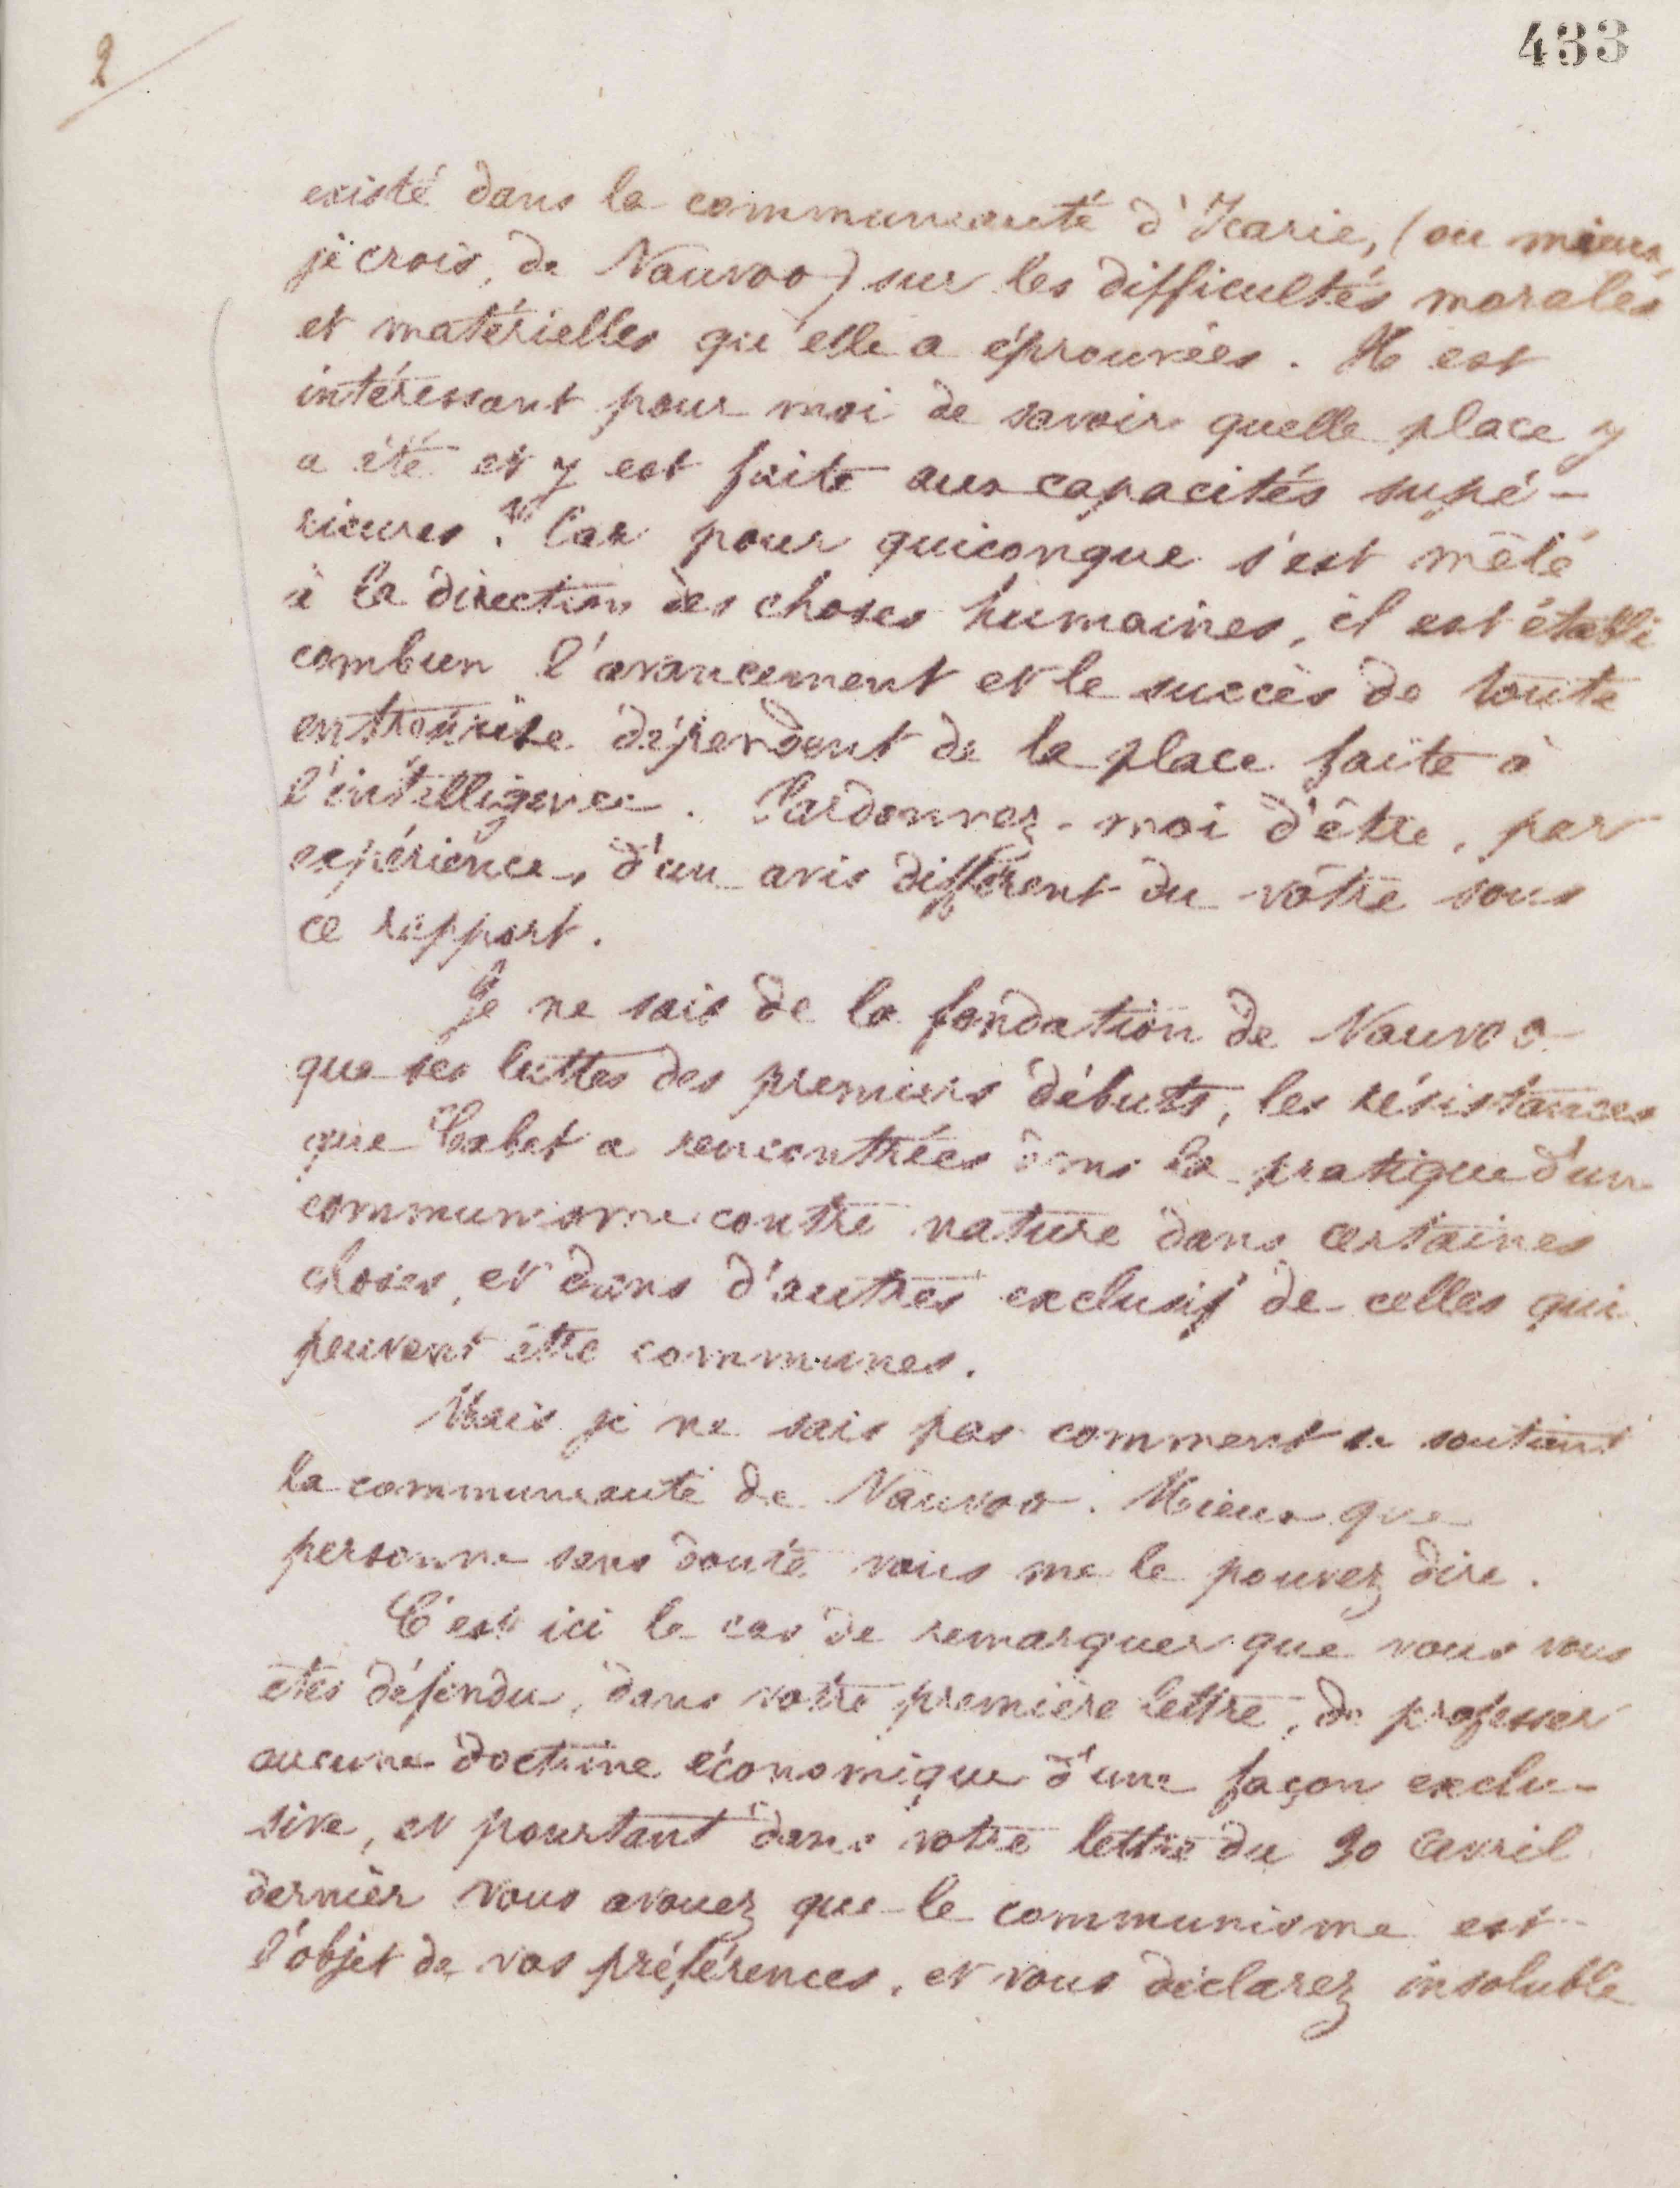 2
433
existé dans la communauté d'Icarie, (ou mieux,
je crois, de Nauvoo) sur les difficultés morales
et matérielles qu'elle a éprouvées. Il est
intéressant pour moi de savoir quelle place y
a été et y est faite aux capacités supé-
rieures. Car pour quiconque s'est mêlé
à la direction des choses humaines, il est établi
combien l'avancement et le succès de toute
entreprise dépendent de la place faite à
l'intelligence. Pardonnez-moi d'être, par
expérience, d'un avis différent du vôtre sous
ce rapport.
Je ne sais de la fondation de Nauvoo
que les luttes des premiers débuts, les résistances
que Cabet a rencontrées dans la pratique d'un
communisme contre nature dans certaines
choses, et dans d'autres exclusif de celles qui
peuvent être communes.
Mais je ne sais pas comment se soutient
la communauté de Nauvoo. Mieux que
personne sans doute vous me le pouvez dire.
C'est ici le cas de remarquer que vous vous
êtes défendu, dans votre première lettre, de professer
aucune doctrine économique d'une façon exclu-
sive, et pourtant dans votre lettre du 30 avril
dernier vous avouez que le communisme est
l'objet de vos préférences, et vous déclarez insoluble